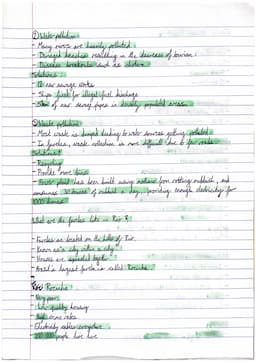 ① Water pollution
- Many rivers are heavily polluted
- Damaged beaches resulting in the decrease of tourism.
- Diseases breakouts such as cholera
Solutions:
- 12 new sewage works
- Ships fined for illegal fuel discharge
- 5km of new sewage pipes in densely populated areas.
② Waste pollution
- Most waste is dumped leading to water sources getting polluted
- In favelas, waste collection is more difficult due to few roads
Solutions:
- Recycling
- Provide more bins
- Power plant has been built using methane from rotting rubbish, and
consumes 30 tonnes of rubbish a day, providing enough electricity for
1000 homes
What are the favelas like in Rio?
- Favelas are located on the hills of Rio.
- Known as 'a city within a city'
- Houses are squeezed together
- Brazil's largest favela is called Rocinha.
Rocinha:
- Very poor
- Low quality housing
- High crime rates
- Electricity
people live here